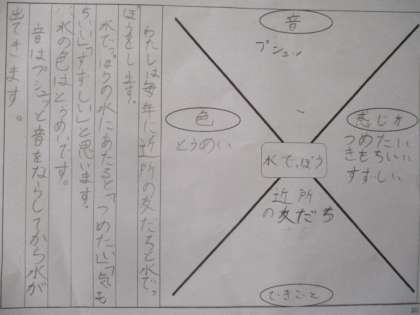 音
プシュッ
色
とうめい
感じ方
つめたい
きもちいい
すずしい
水でっぽう
近所
の友だち
できごと
わたしは毎年に近所の友だちと水でっ
ぽうをします。
水でっぽうの水にあたると「つめたい」「気も
ちいい」「すずしい」と思います。
水の色はとうめいです。
音はプシュッと音をならしてから水が
出てきます。